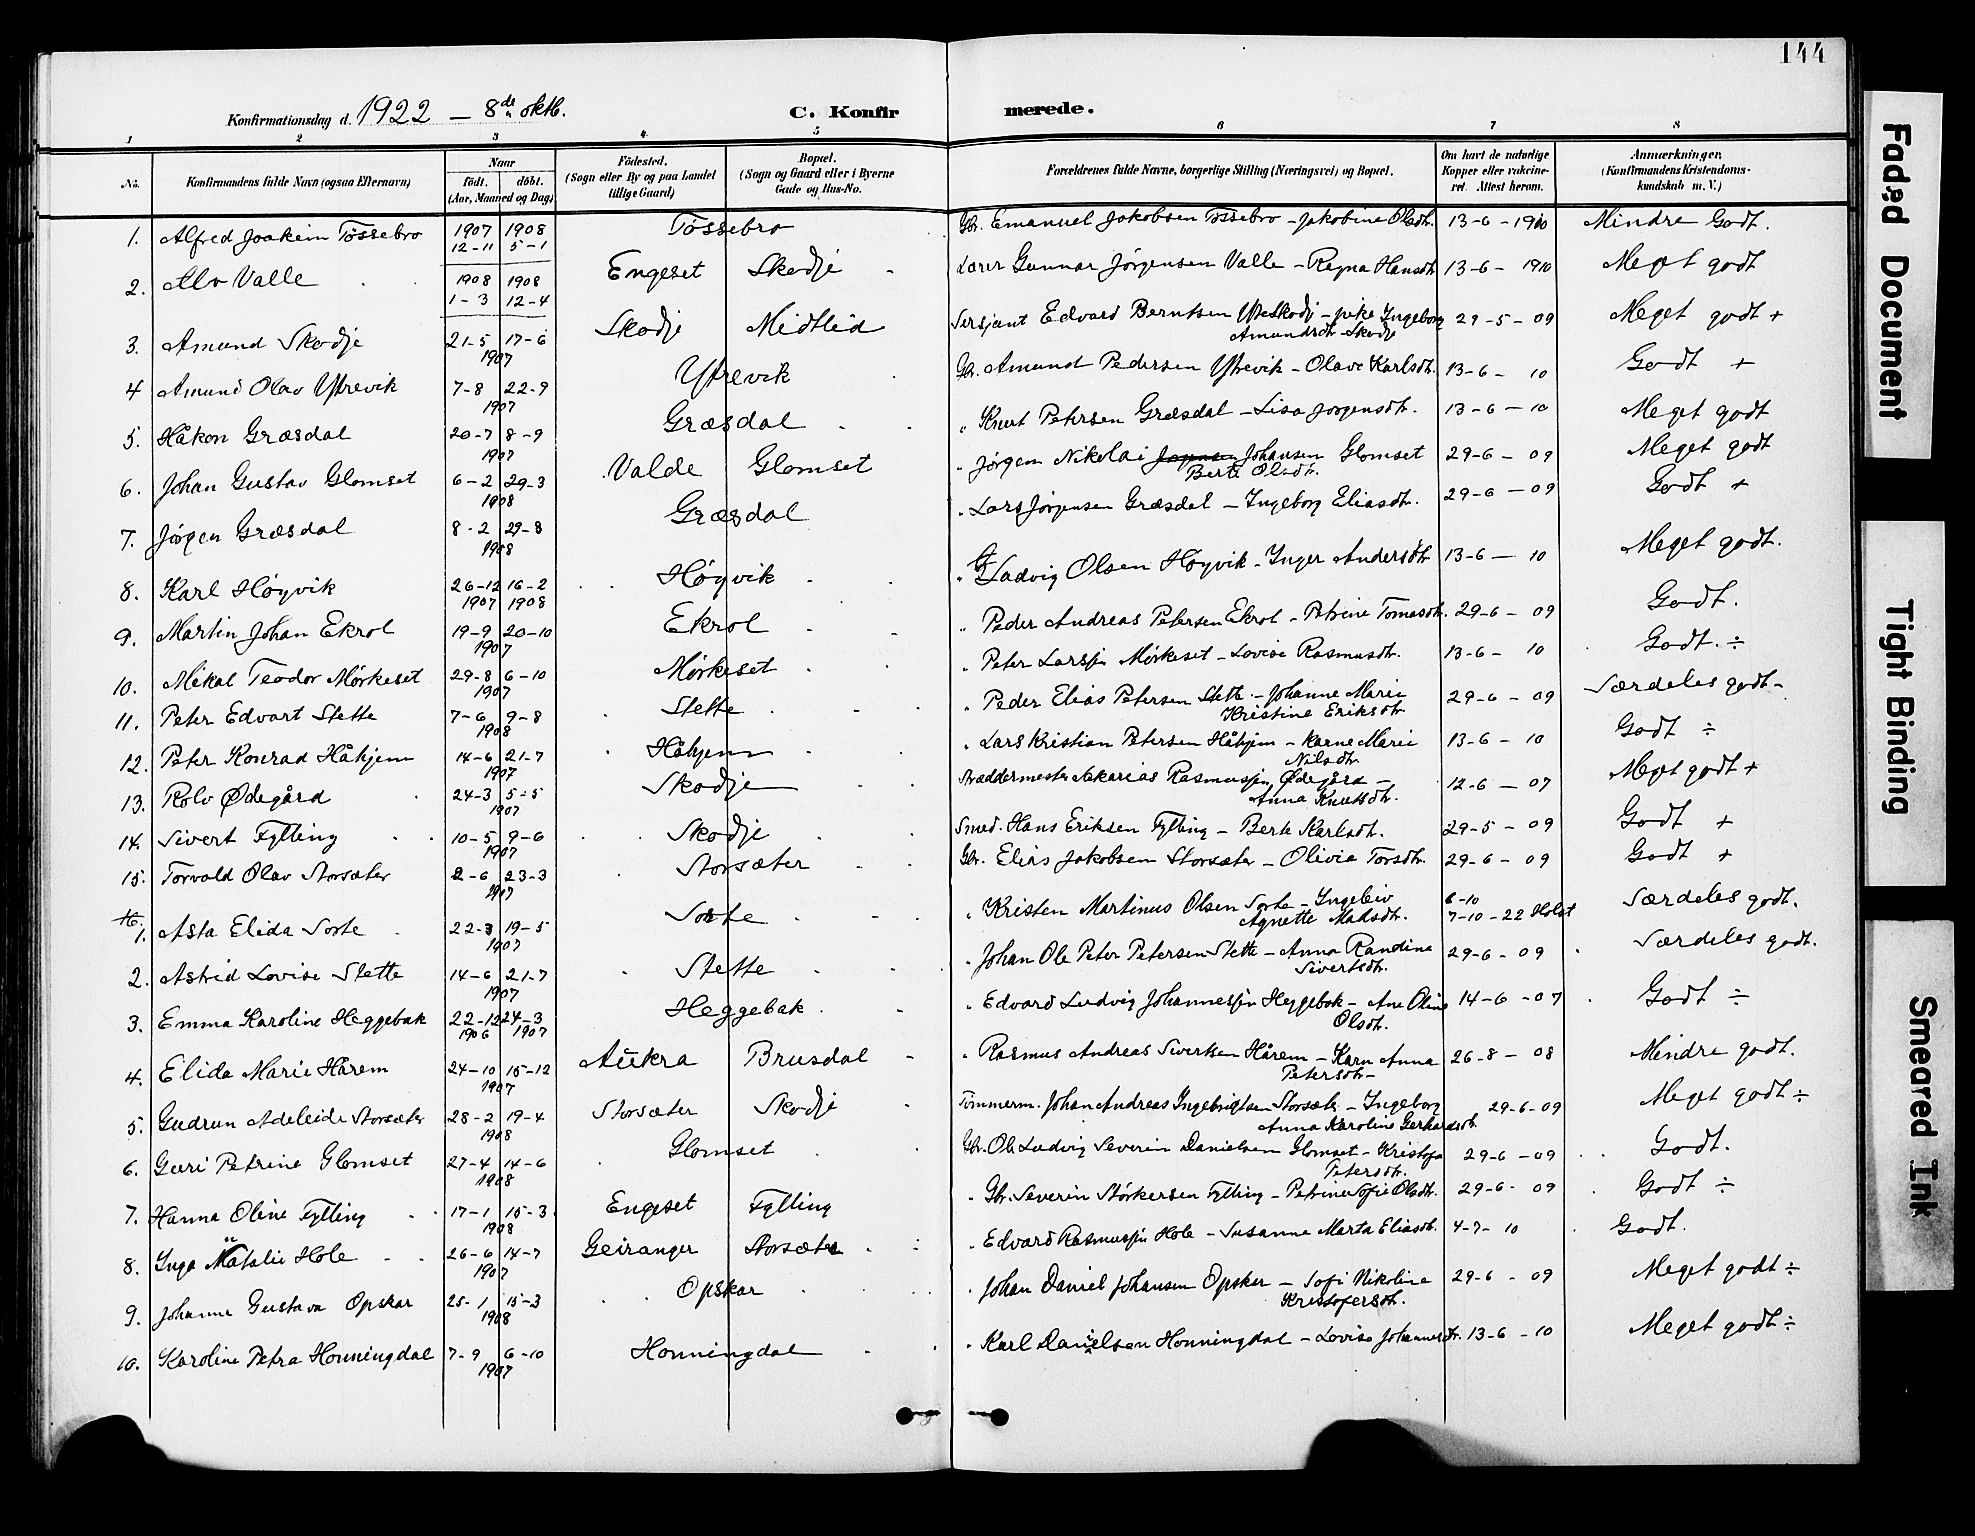 144
Konfirmationsdag d. 1922 – 8de oktb. C. Konfirmerede.
1 2 3 4 5 6 7 8
No. Konfirmandens fulde Navn (ogsaa Efternavn) Naar født. døbt. (Aar, Maaned og Dag) Fødested. (Sogn eller By og paa Landet tillige Gaard) Bopæl. (Sogn og Gaard eller i Byerne Gade og Hus-No. Forældrenes fulde Navne, borgerlige Stilling (Næringsvei) og Bopæl. Om havt de naturlige Kopper eller vakcineret. Attest herom. Anmærkninger. (Konfirmandens Kristendomskundskab m. V.)
1. Alfred Joakim Tøssebro 1907 12-11 1908 5-1 Tøssebro Gbr. Emanuel Jakobsen Tøssebro – Jakobine Olsdtr. 13-6-1910 Mindre Godt.
2. Alv Valle 1908 1-3 1908 12-4 Engeset Skodje Lærer Gunnar Jørgensen Valle – Regna Hansdtr 13-6-1910 Meget godt
3. Amund Skodje 21-5 17-6 1907 Skodje Midtlid Sersjant Edvard Berntsen Ytreskodj – pike Ingeborg Amundsdtr Skodje 29-5-09 Meget godt +
4 Amund Olav Ytrevik 7-8 22-9 1907 Ytrevik Gbr. Amund Pedersen Ytrevik – Olave Karlsdtr. 13-6-10 Godt +
5. Håkon Græsdal 20-7 8-9 1907 Græsdal „ Knut Petersen Græsdal – Lisa Jørgensdtr. 13-6-10 Meget godt
6. Johan Gustav Glomset 6-2 29-3 1908 Valde Glomset „ Jørgen Nikolai Johansen Glomset Berte Olsdtr. 29-6-09 Meget godt
7. Jørgen Græsdal 8-2 29-8 1908 Græsdal „ Lars Jørgensen Græsdal – Ingeborg Eliasdtr. 29-6-09 Godt +
8. Karl Høyvik 26-12 1907 16-2 1908 Høyvik „ Ladvig Olsen Høyvik – Inger Andersdtr 13-6-10 Meget godt.
9. Martin Johan Ekrol 19-9 20-10 1907 Ekrol „ Peder Andreas Petersen Ekrol – Petrine Tomasdtr. 29-6-09 Godt.
10. Mikal Teodor Mørkeset 29-8 6-10 1907 Mørkeset „ Peter Larssen Mørkeset – Lovise Rasmusdtr. 13-6-10 Godt. ÷
11. Peter Edvart Slette 7-6 9-8 1908 Slette „ Peder Elias Petersen Slette – Johanne Marie Kristine Eriksdtr 29-6-09 Særdeles godt –
12. Peter Konrad Håhjem 14-6 21-7 1907 Håhjem „ Lars Kristian Petersen Håhjem – Karne Marie Nilsdtr 13-6-10 Godt ÷
13. Rolv Ødegård 24-3 5-5 1907 Skodje Sakarias Rasmussen Ødegård – Anna Knutsdtr. 12-6-07 Meget godt +
14. Sivert Fylling 10-5 9-6 1907 Skodje Smed. Hans Eriksen Fylling – Berte Karlsdtr. 29-5-09 Godt +
15. Torvald Olav Storsæter 2-6 23-3 1907 Storsæter Gbr. Elias Jakobsen Storsæter – Olivia Torsdtr. 29-6-09 Godt +
1. Asta Elida Sorte 22-3 19-5 1907 Sorte „ Kristen Martinus Olsen Sorte – Ingeleiv Agnette Matsdtr. 6-10 7-10-22 Holst Særdeles godt.
2. Astrid Lovise Slette 14-6 21-7 1907 Slette „ Johan Ole Peter Petersen Slette – Anna Randine Sivertsdtr. 29-6-09 Særdeles godt.
3. Emma Karoline Heggebak 22-12 1906 24-3 1907 Heggebak „ Edvard Ludvig Johannessen Heggebak – Ane Oline Olsdtr. 14-6-07 Godt ÷
4. Elida Marie Hårem 24-10 15-12 1907 Aukra Brusdal „ Rasmus Andreas Sivertsen Hårem – Karn Anna Petersdtr – 26-8-08 Mindre godt.
5. Gudrun Adeleide Storsæter 28-2 19-4 1908 Storsæter Skodje Tømmerm. Johan Andreas Ingebrigtsen Storsæter – Ingeborg Anna Karoline Gerhardsdtr 29-6-09 Meget godt ÷
6. Guri Petrine Glomset 27-4 14-6 1908 Glomset Gbr. Ole Ludvig Severin Danielsen Glomset – Kristofa Petersdtr. 29-6-09 Godt.
7. Hanna Oline Fylling 17-1 15-3 1908 Engeset Fylling „ Gbr. Severin Størkersen Fylling – Petrine Sofie Olsdtr. 29-6-09 Godt ÷
8. Inga Natalie Hole 26-6 14-7 1907 Geiranger Storsæter „ Edvard Rasmussen Hole – Susanne Marta Eliasdtr. 4-7-10 Godt.
9. Johanne Gustava Opskar 25-1 15-3 1908 Opskar „ Johan Daniel Johansen Opskar – Sofi Nikoline Kristofersdtr. 29-6-09 Meget godt ÷
10. Karoline Petra Honningdal 7-9 6-10 1907 Honningdal „ Karl Danielsen Honningdal – Lovise Johannesdtr. 13-6-10 Meget godt ÷
Faded Document
Tight Binding
Smeared Ink